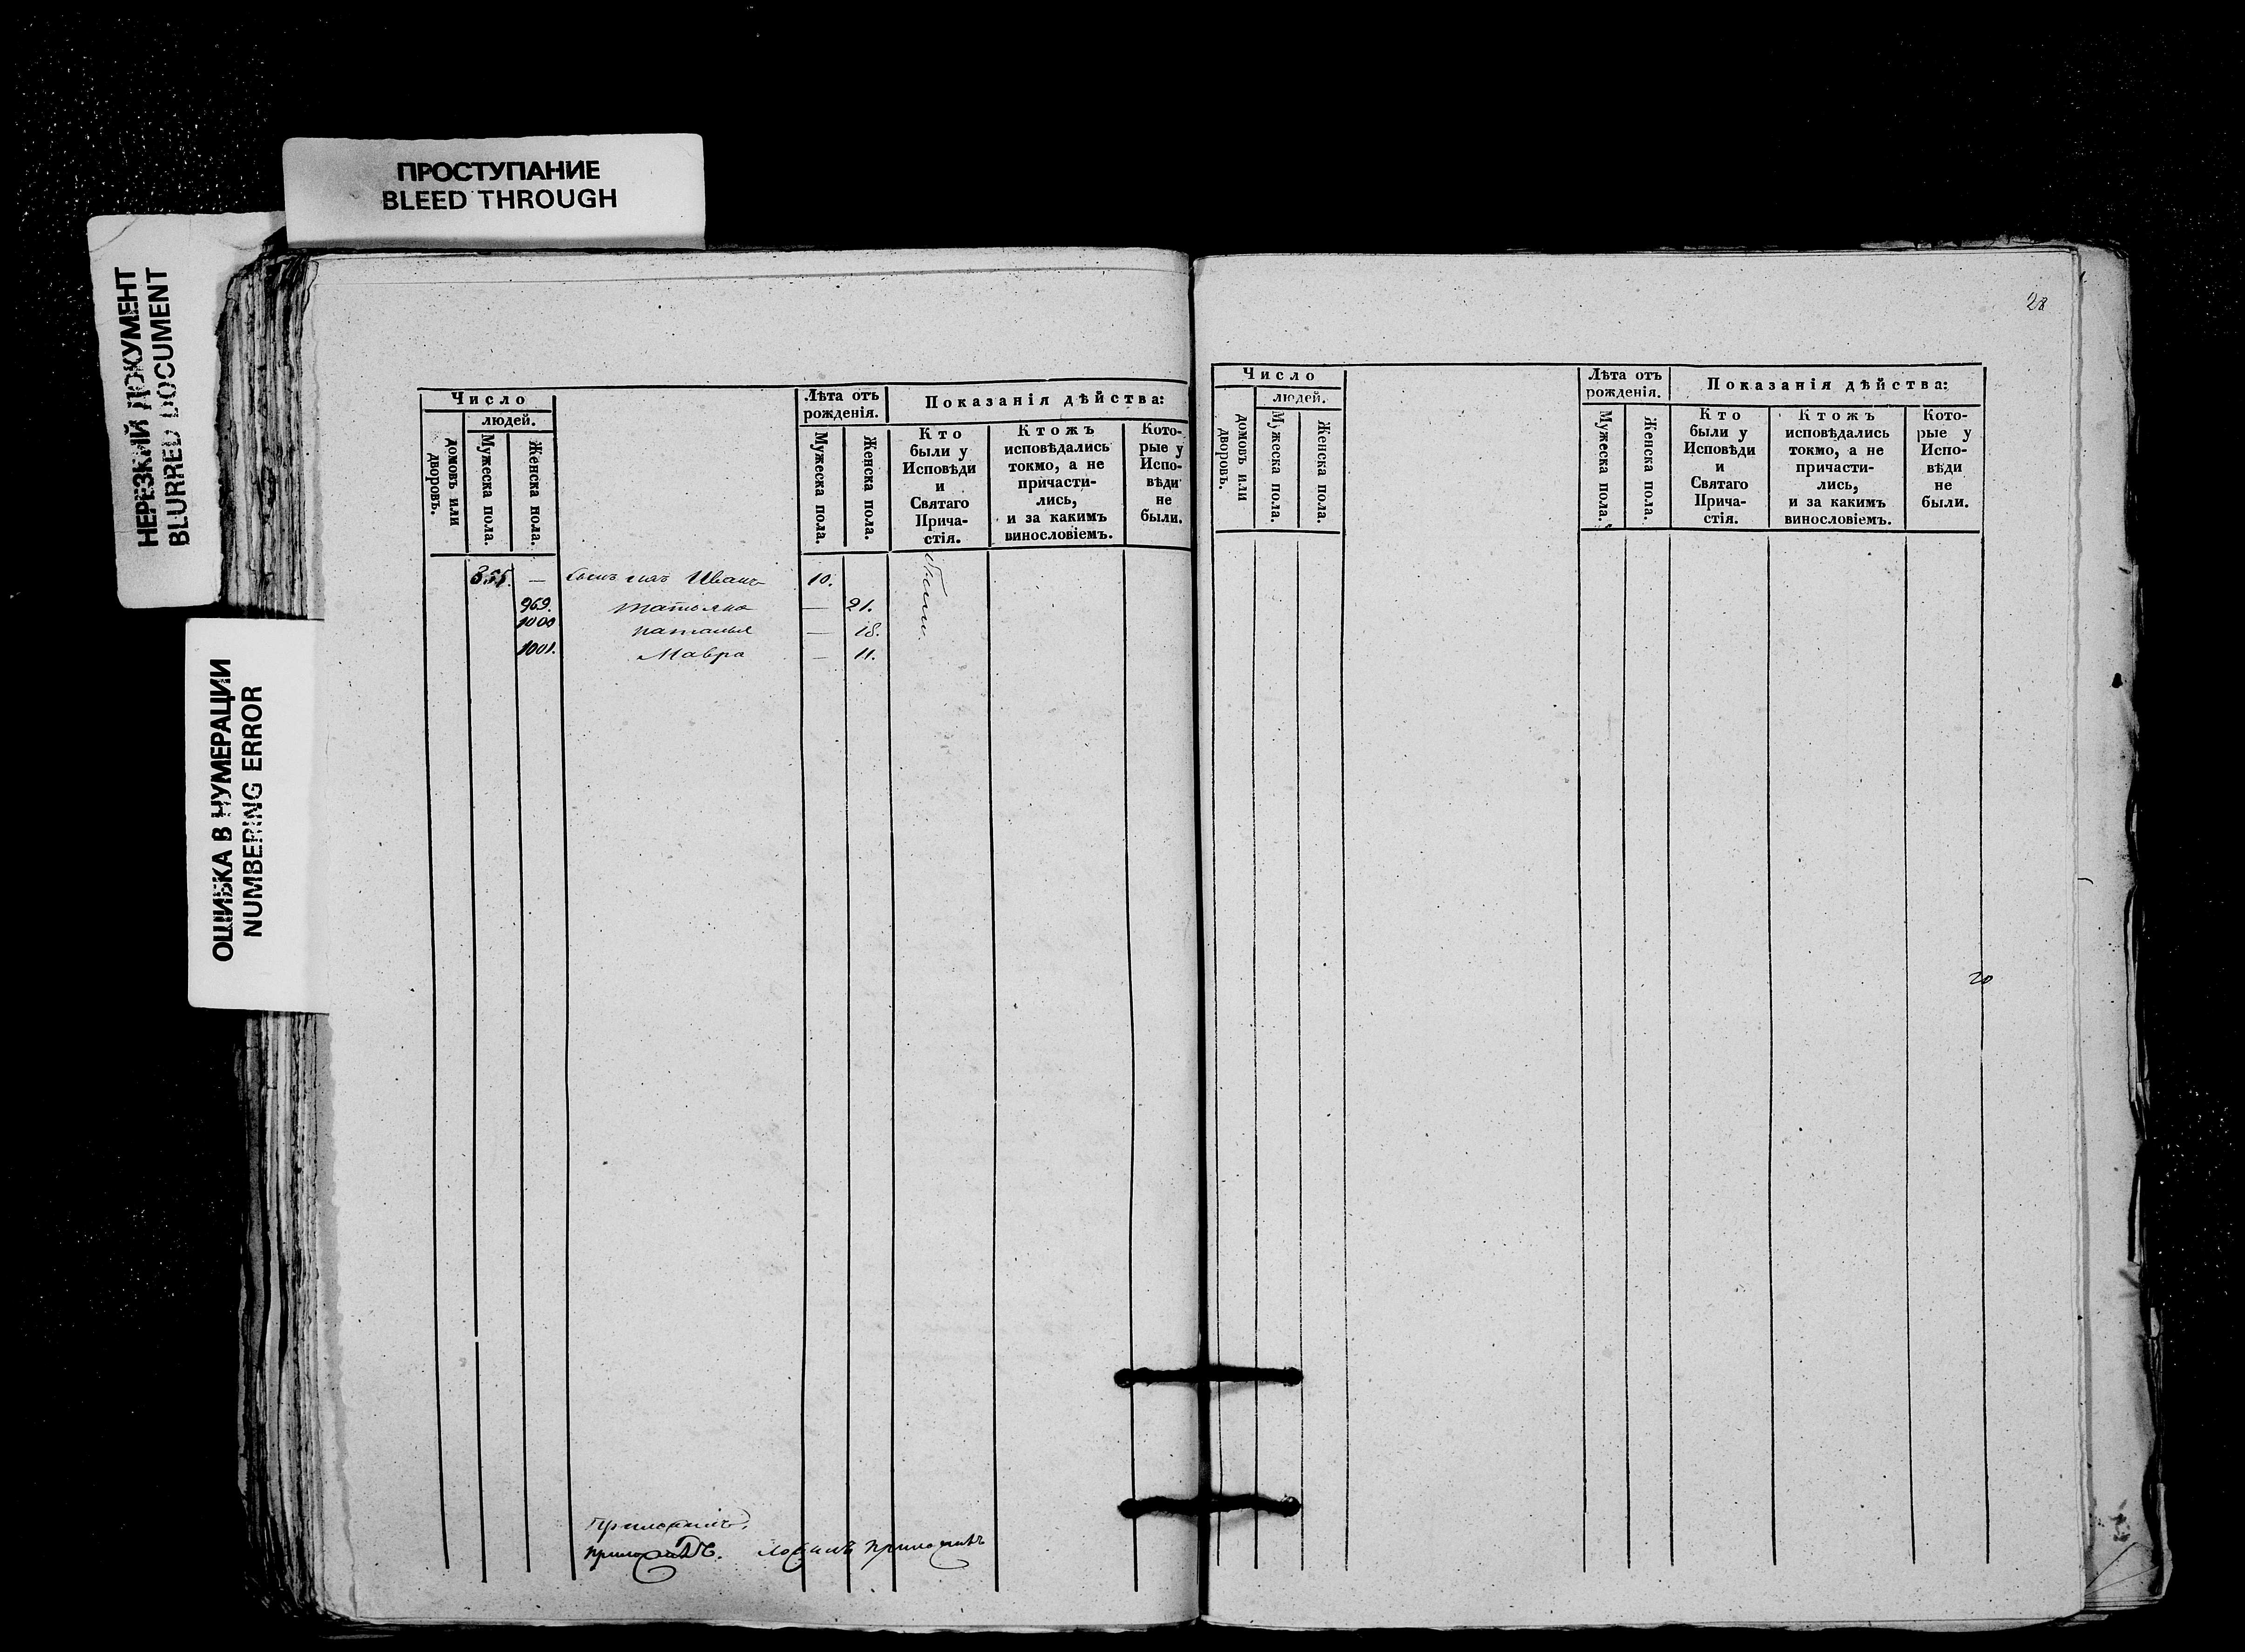 ПРОСТУПАНИЕ
BLEED THROUGH
НЕРЕЗКИЙ ДОКУМЕНТ
BLURRED DOCUMENT
ОШИБКА В НУМЕРАЦИИ
NUMBERING ERROR
Число
людей.
домовъ или
дворовъ.
Мужеска пола.
Женска пола.
Лѣта отъ
рожденія.
Мужеска пола.
Женска пола.
Показанія дѣйства:
Кто
были у
Исповѣди
и
Святаго
Прича-
стія.
Ктожъ
исповѣдались
токмо, а не
причасти-
лись,
и за какимъ
винословіемъ.
Кото-
рые у
Испо-
вѣди
не
были.
355. — Сынъ ихъ Иванъ 10.
969. Татьяна — 21.
1000 Наталья — 18.
1001. Мавра — 11.
28
Число
людей.
домовъ или
дворовъ.
Мужеска пола.
Женска пола.
Лѣта отъ
рожденія.
Мужеска пола.
Женска пола.
Показанія дѣйства:
Кто
были у
Исповѣди
и
Святаго
Прича-
стія.
Ктожъ
исповѣдались
токмо, а не
причасти-
лись,
и за какимъ
винословіемъ.
Кото-
рые у
Испо-
вѣди
не
были.
20